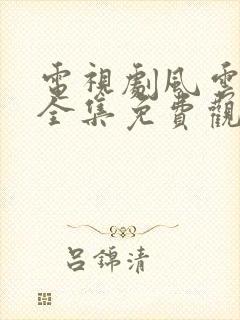 電視劇風雲
全集免費觀
呂錦清